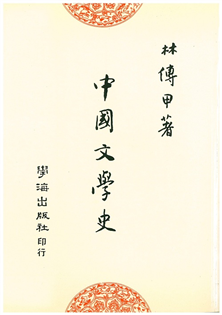 林傳甲著
中國文學史
學海出版社印行